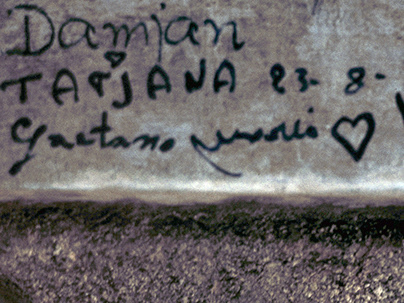 Damjan
TATJANA 23-8-
Gaetano